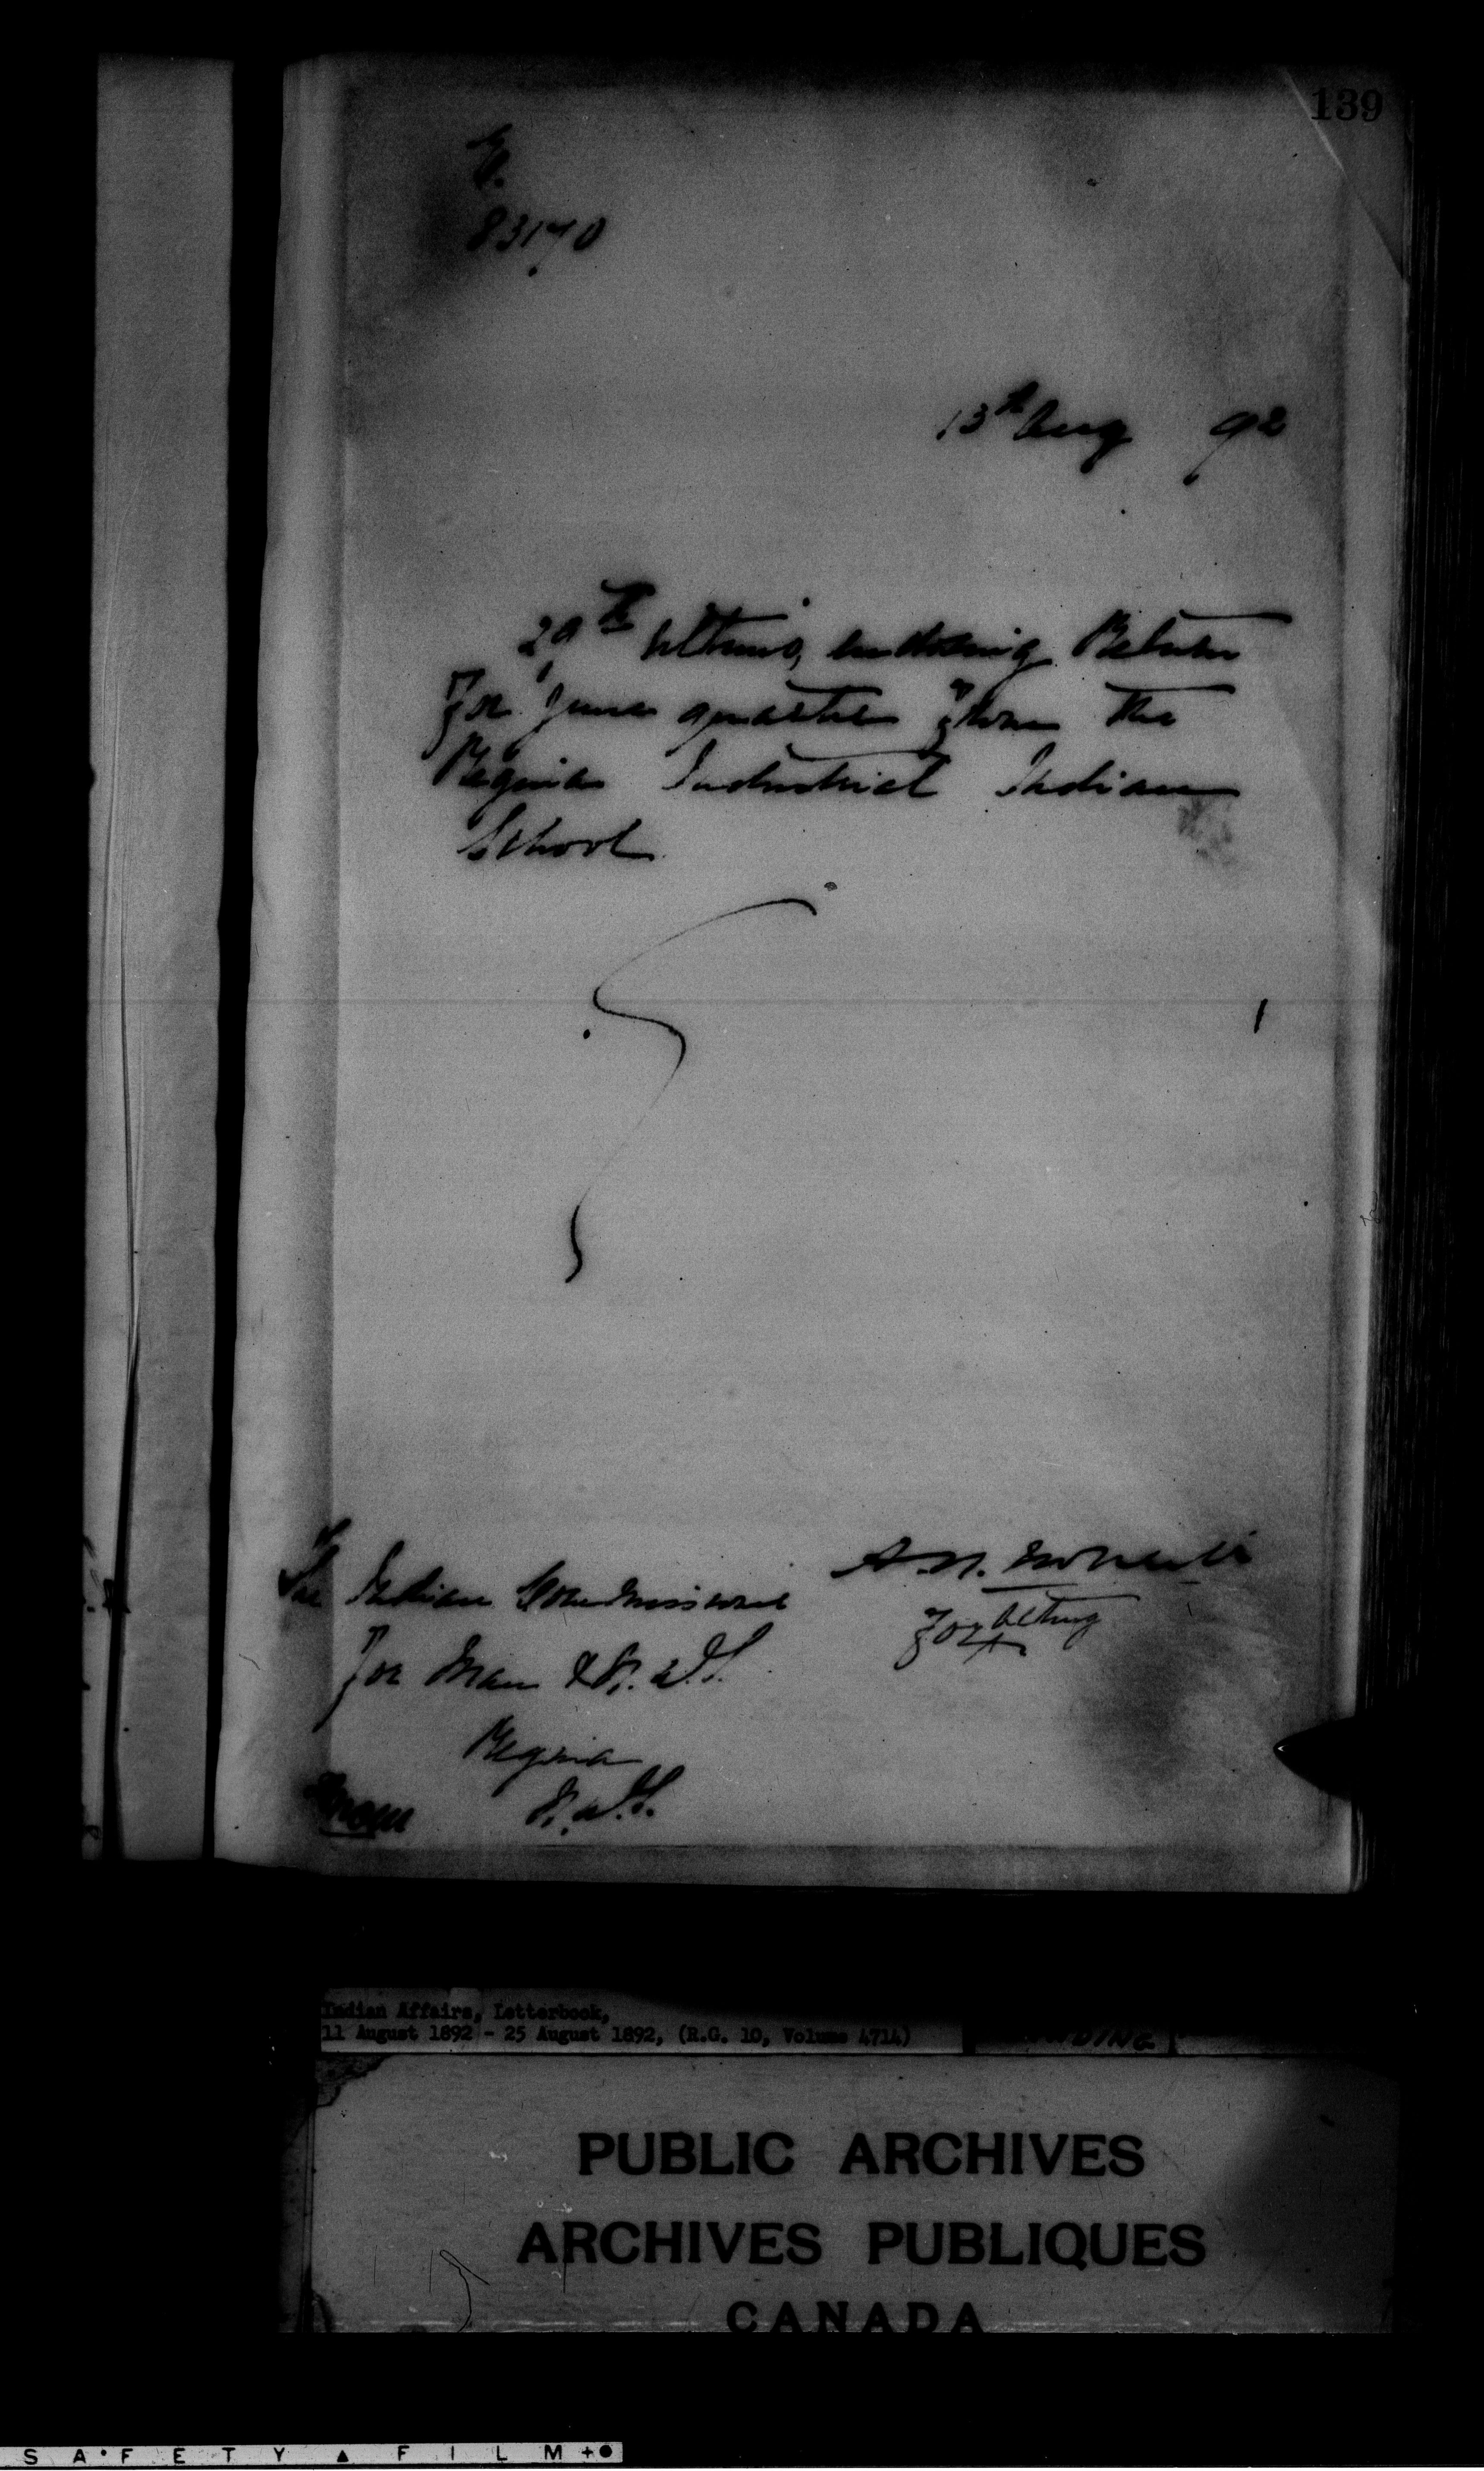 139
83170
13th Aug 92
29th ultimo, enclosing Return
for June quarter from the
Regina Industrial Indian
School
The Indian Commissioner
for Man & N.W.T.
Regina
N.W.T.
A.N. McNeill
For Acting
Indian Affairs, Letterbook,
11 August 1892 - 25 August 1892, (R.G. 10, Volume 4714)
PUBLIC ARCHIVES
ARCHIVES PUBLIQUES
CANADA
SAFETY FILM